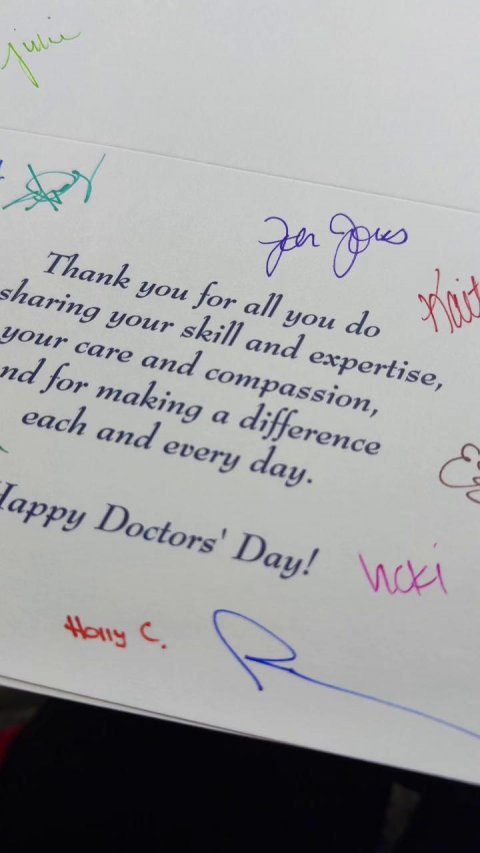 julie
Thank you for all you do
sharing your skill and expertise,
your care and compassion,
nd for making a difference
each and every day.
Happy Doctors' Day!
Vicki
Holly C.